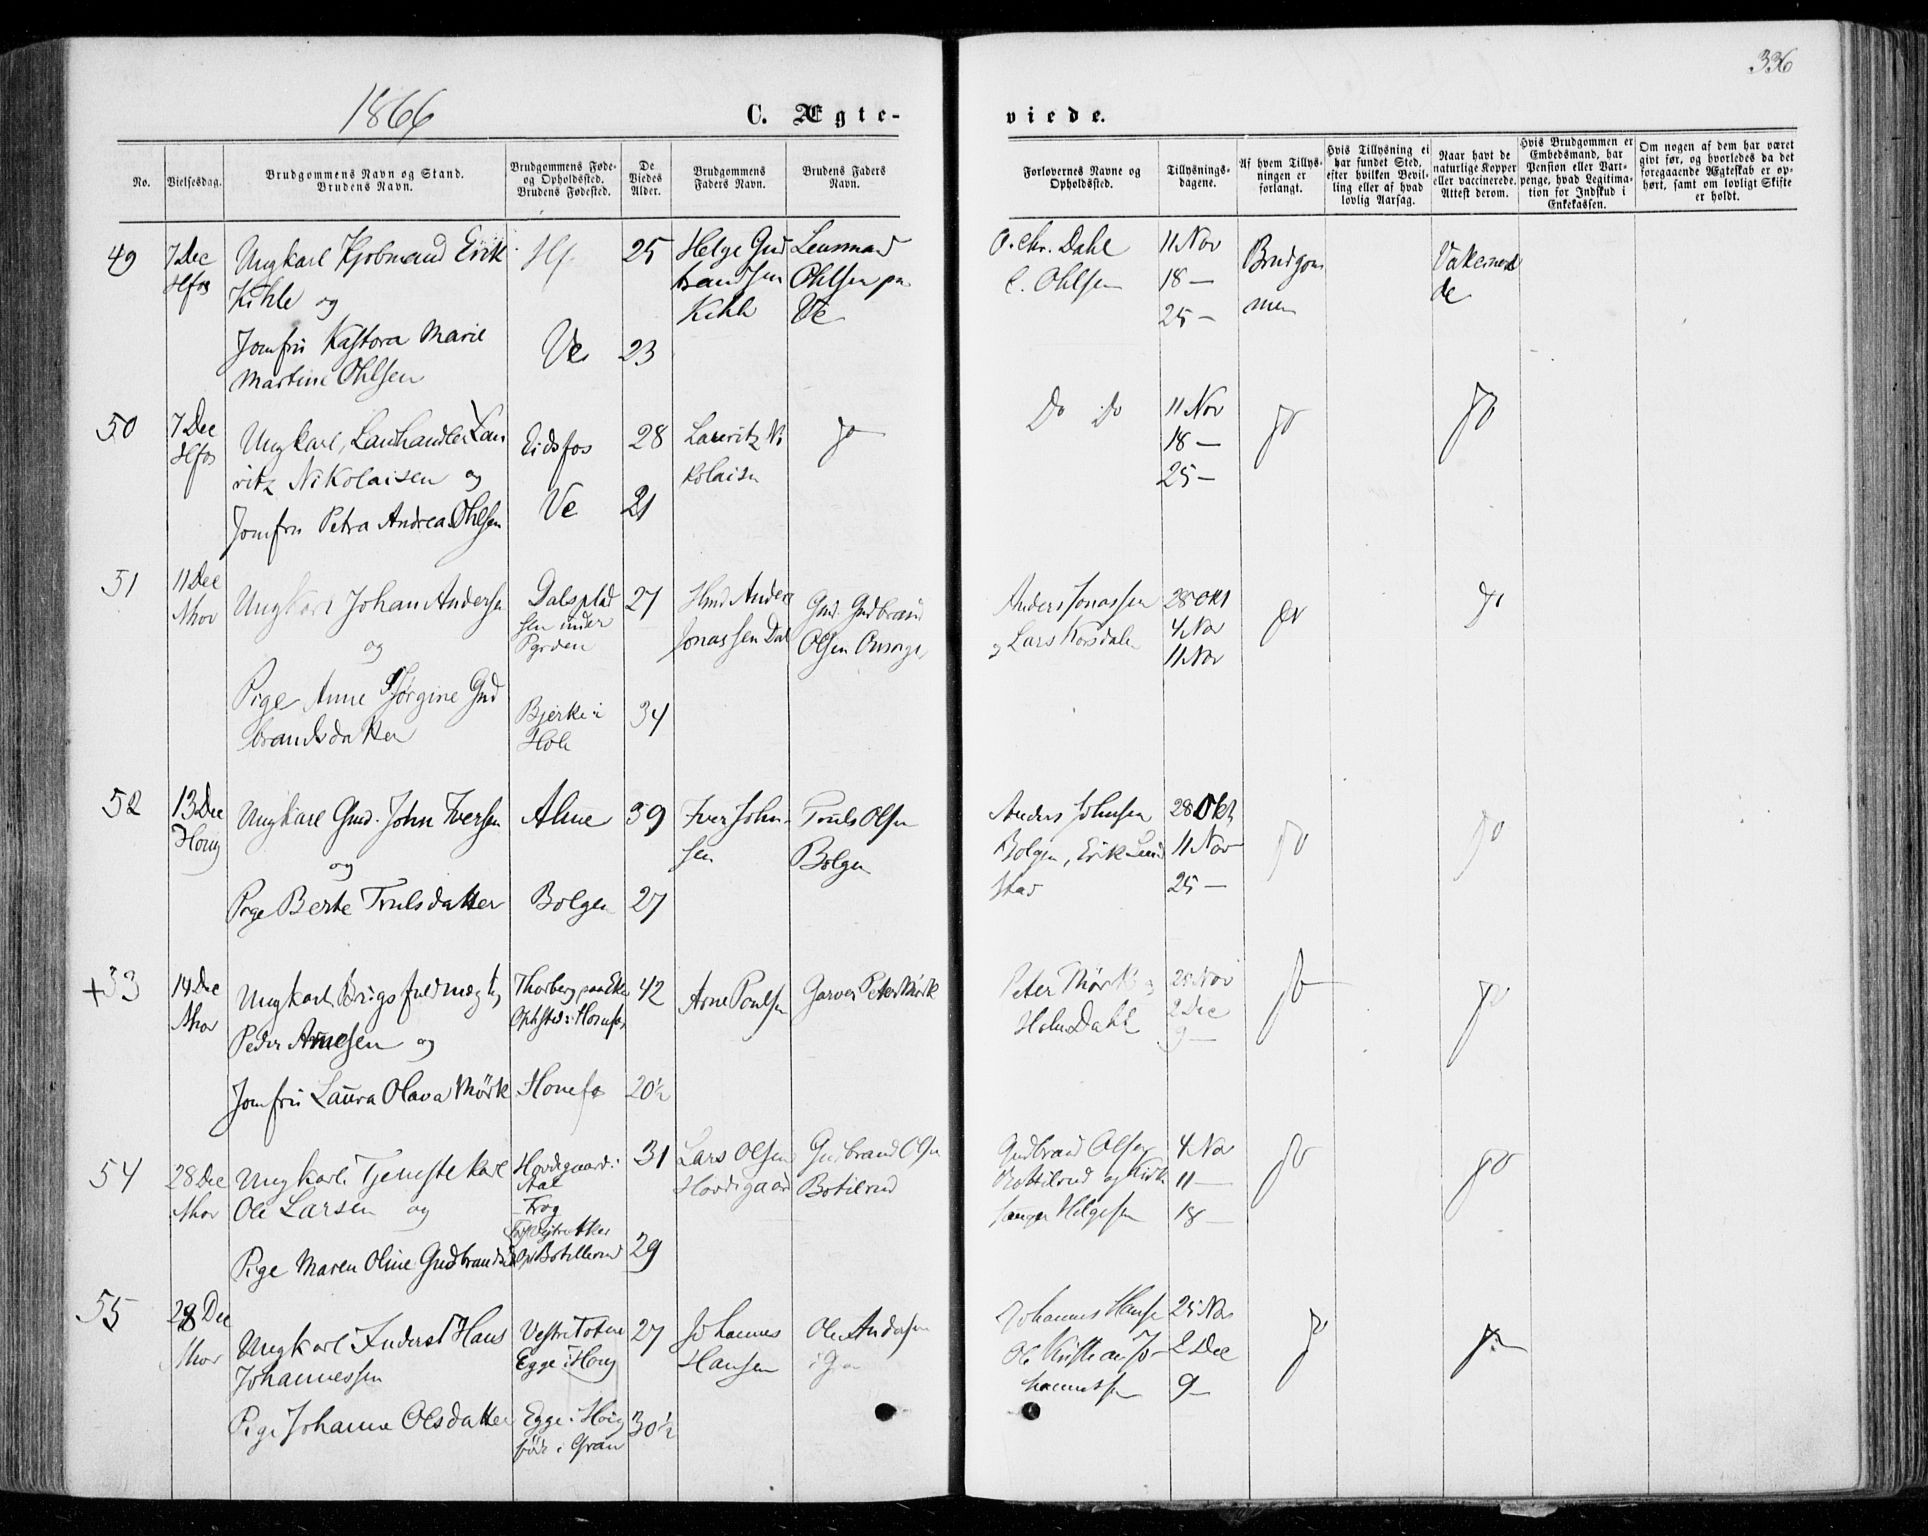 336
1866
C. Ægte-
viede.
No.
Vielsesdag.
Brudgommens Navn og Stand.
Brudens Navn.
Brudgommens Føde-
og Opholdssted.
Brudens Fødested.
De
Viedes
Alder.
Brudgommens
Faders Navn.
Brudens Faders
Navn.
Forlovernes Navne og
Opholdssted.
Tillysnings-
dagene.
Af hvem Tillys-
ningen er
forlangt.
Hvis Tillysning ei
har fundet Sted,
efter hvilken Bevil-
ling eller af hvad
lovlig Aarsag.
Naar havt de
naturlige Kopper
eller vaccinerede.
Attest derom.
Hvis Brudgommen er
Embedsmand, har
Pension eller Vart-
penge, hvad Legitima-
tion for Indskud i
Enkekassen.
Om nogen af dem har været
givt før, og hvorledes da det
foregaaende Ægteskab er op-
hørt, samt om lovligt Skifte
er holdt.
49
7 Dec
Hfos
Ungkarl Kjøbmand Erik
Kihle og
Jomfru Kastora Marie
Martine Ohlsen
Hf.
Ve
25
23
Helge Gud
brandsen
Kihle
Lensmand
Ohlsen paa
Ve
O. Chr. Dahl
C. Ohlsen
11 Nov
18 —
25 —
Brudgom
men
Vakcinere
de
50
7 Dec
Hfos
Ungkarl, Lanhandler Lau
ritz Nikolaisen og
Jomfru Petra Andrea Ohlsen
Eidsfos
Ve
28
21
Lauritz Ni
kolaisen
Do
Do Do
11 Nov
18 —
25 —
Do
Do
51
11 Dec
Nhov
Ungkarl Johan Andersen
og
Pige Anne Jørgine Gud
brandsdatter
Dalsplad
sen under
Bjerke i
Hole
27
34
Hmd Anders
Jonassen Dal
Gmd. Gudbrand
Olsen
Anders Jonassen
og Lars Korsdalen
28 Okt
4 Nov
11 Nov
Do
Do
52
13 Dec
Honig
Ungkarl Gmd. John Iversen
og
Pige Berte Trulsdatter
Alme
Bolgen
39
27
Iver John-
sen
Truls Olsen
Bolgen
Anders Johnsen
Bolgen, Erik Lund
stad
28 Okt
11 Nov
25 —
Do
Do
+53
14 Dec
Nhov
Ungkarl Brugsfuldmægtig
Peder Arnesen og
Jomfru Laura Olava Mørk
Thorberg paa Eker
Opholdsted: Hønefos
Hønefos
42
20½
Arne Poulsen
Garver Peter Mørk
Peter Mørk og
Holm Dahl
25 Nov
2 Dec
9 —
Do
Do
54
28 Dec
Nhov
Ungkarl Tjenestekarl
Ole Larsen og
Pige Maren Oline Gudbrandsd
Hovdegaard i
Aal
Trøg
Vestre Aker
Op Botillerud
31
29
Lars Olsen
Hovdegaard
Gudbrand Olsen
Botilrud
Gudbrand Olsen
Bottilrud og Kirke
sanger Helgesen
4 Nov
11 —
18 —
Do
Do
55
28 Dec
Nhov
Ungkarl Inderst Hans
Johannessen
Pige Johanne Olsdatter
Vestre Toten
Egge i Honig
Egge i Honig
født i Gran
27
30½
Johannes
Hansen
Ole Andersen
i Gran
Johannes Hansen
Ole Kristian Jo-
hannessen
25 Nov
2 Dec
9 —
Do
Do